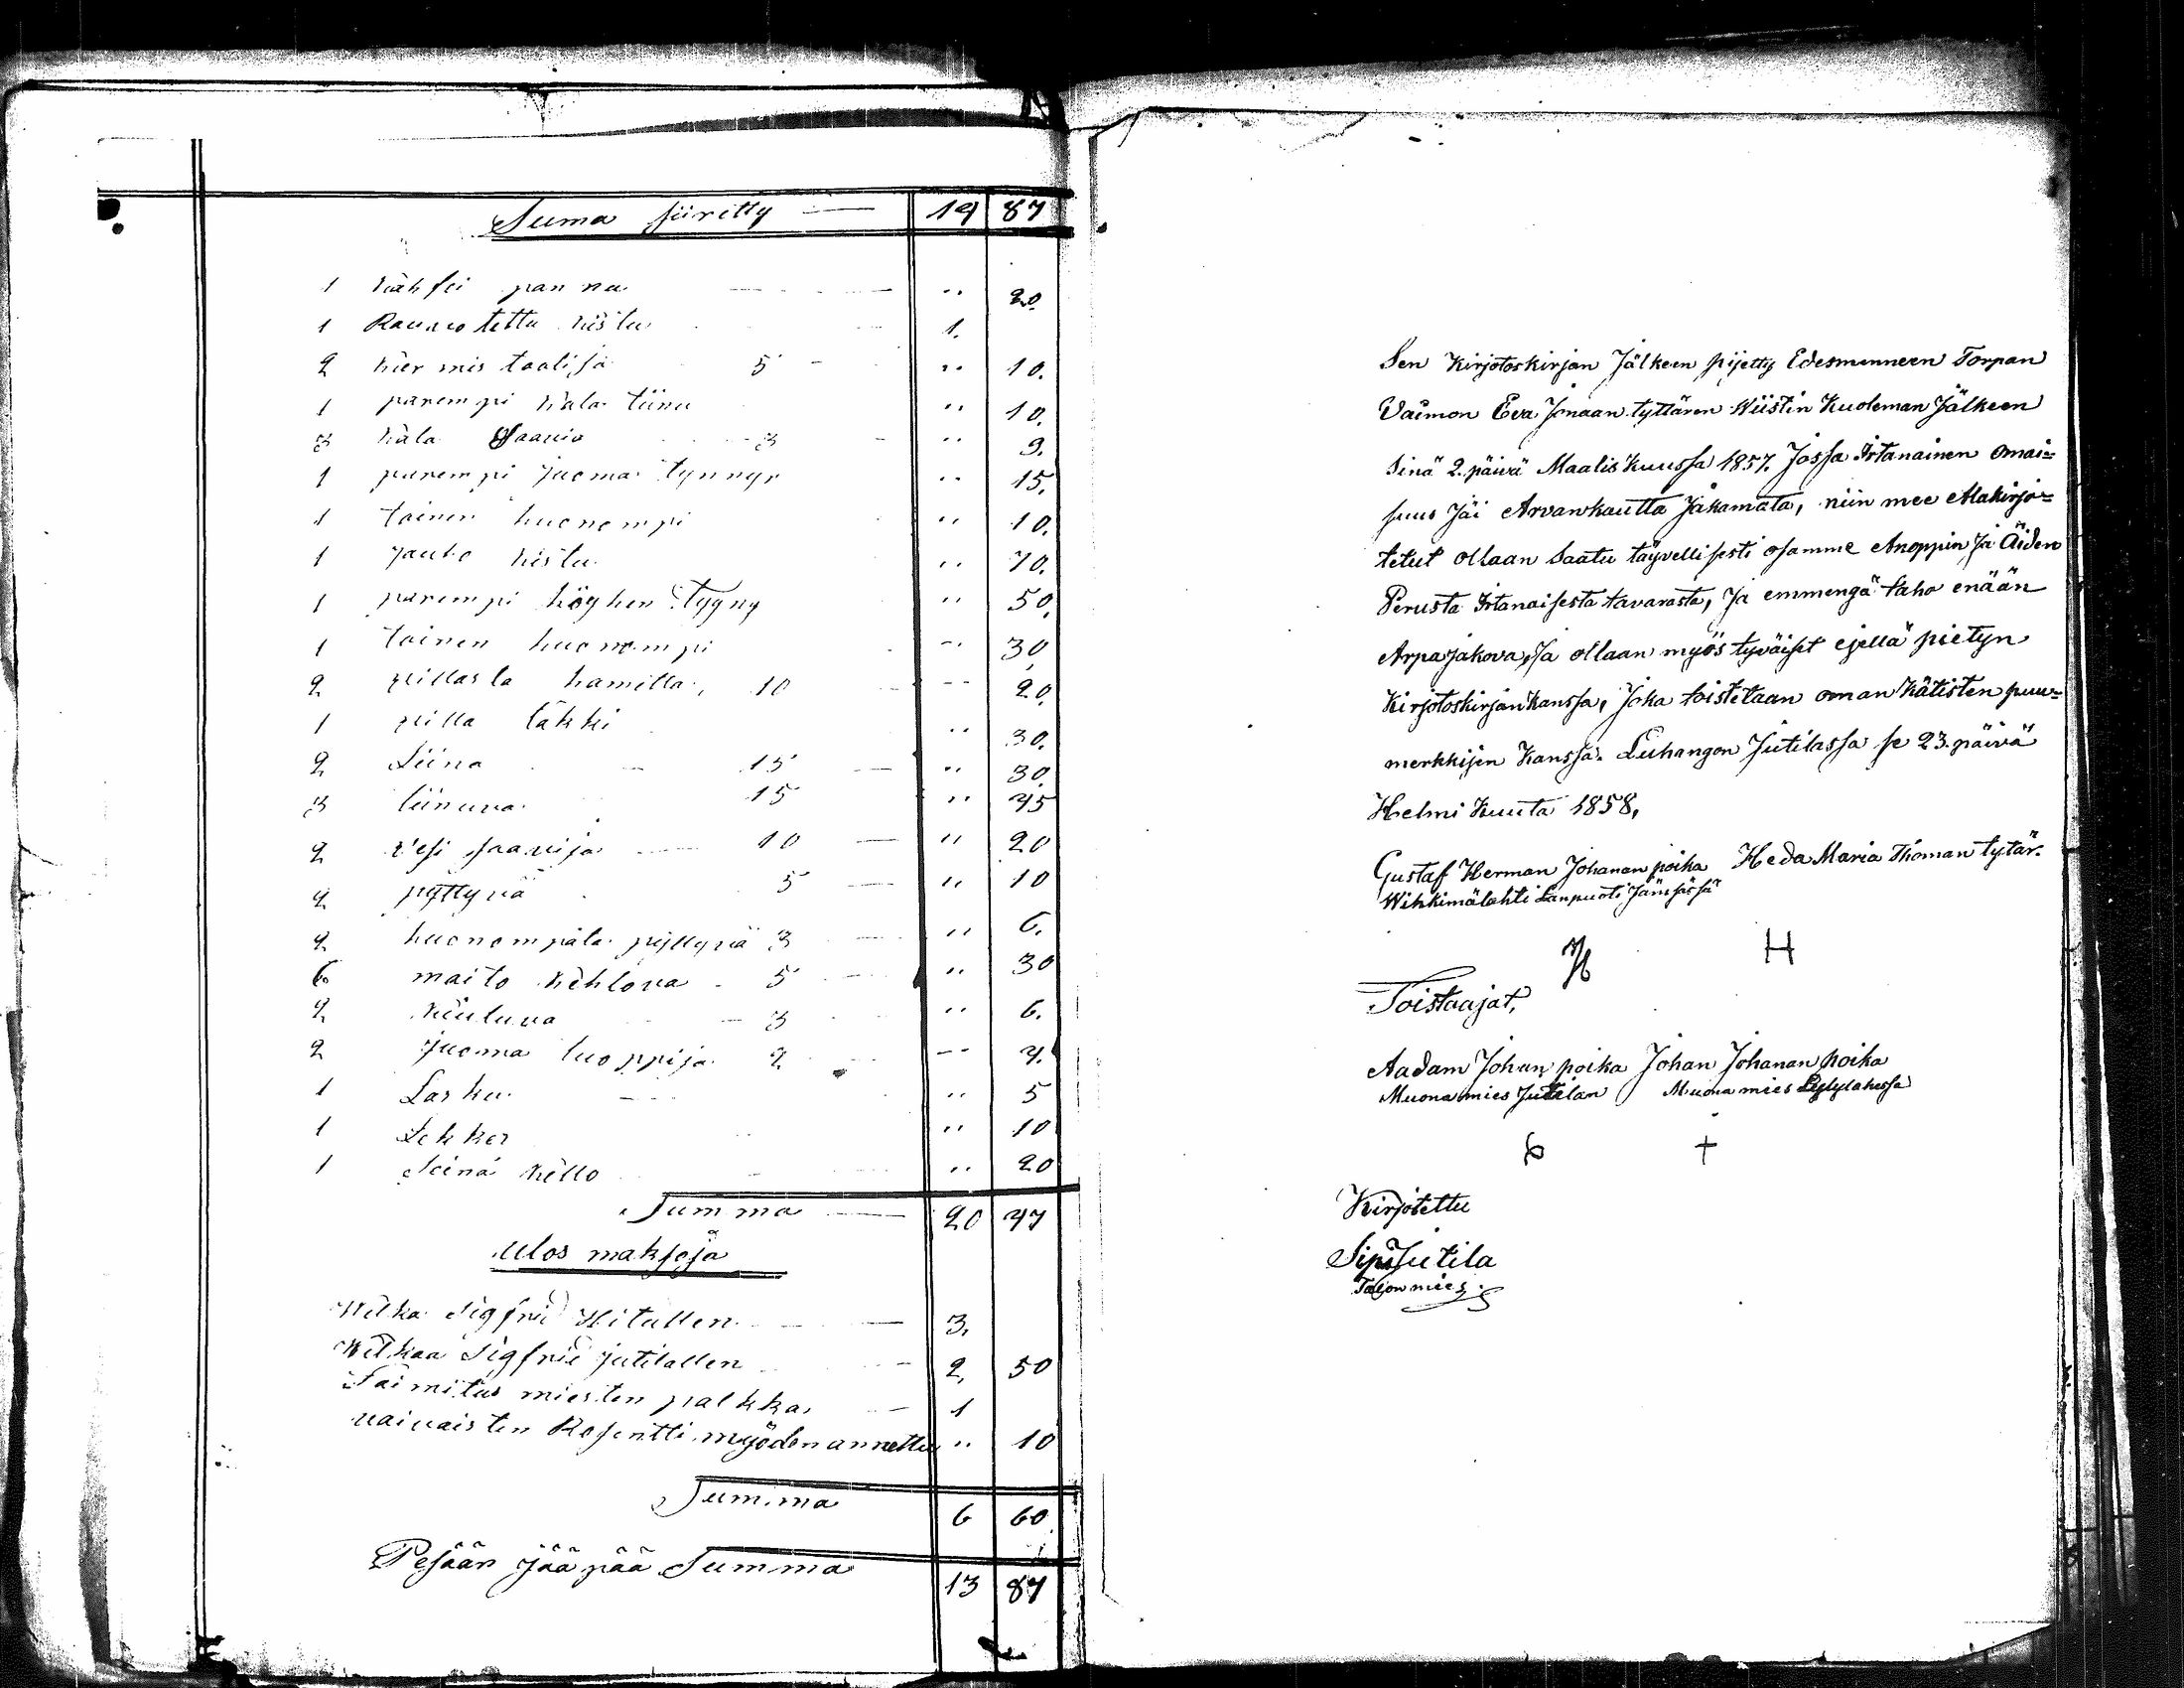 Suma siiretty — 19 87
1 kahfei panna — " 20.
1 Raunotettu kistu 1.
2 5 — " 10.
1 parempi kala tiinu " 10.
3 kala Saavia 3 — " 9.
1 parempi juoma tynnyr " 15.
1 toinen huonompi " 10.
1 jauho kistu " 70.
1 parempi höyhen tyyny " 50.
1 toinen huonompi " 30.
2 villasta hamilta, 10 " 20.
1 villa täkki " 30.
2 Liina — 15 — " 30.
3 liinuva 15 " 45
2 vesi saavija — 10 — " 20
2 pyttyvä 5 — " 10
2 huonompata pyttyvä 3 — " 6.
6 maito kehlova - 5 — " 30
2 kiuluva — 3 " 6.
2 Juoma tuoppija 2. " 4.
1 Lasku — " 5
1 Lekker " 10
1 Seinä kello " 20
Summa — 20 47
Ulos maksoja
Welka Sigfrid Hitullen — 3.
Welkaa Sigfrid Jutilallen — 2. 50
Toimitus miesten palkka, — 1
vaivaisten Rosentti myöden annettu " 10
Summa 6 60
Pesään jää pää Summa 13 87
Sen Kirjotoskirjan Jälkeen pijetty Edesmenneen Torpan
Vaimon Eva Jonaan tyttären Wiistin Kuoleman Jälkeen
Sinä 2. päivä Maalis kuussa 1857. Jossa Irtanainen omai=
suus Jäi Arvankautta Jakamata, niin mee Alakirjo=
tetut ollaan Saatu täyvellisesti osamme Anoppin Ja Äiden
Perusta Irtanaisesta tavarasta, Ja emmengä taho enään
Arpajakova, Ja ollaan myös tyväiset ejellä pietyn
Kirjotoskirjan kanssa, Joka toistetaan oman Kätisten puu=
merkkijen Kanssa. Luhangon Jutilassa se 23. päivä
Helmi Kuuta 1858,
Gustaf Herman Johanan poika Heda Maria Thoman tytär.
Wihkimälahti Lanpuoti Jämsässä
H H
Toistaajat,
Aadam Johan poika Johan Johanan poika
Muona mies Jutilan Muona mies Lylylahessa
+
Kirjotettu
Sipi Jutila
Talon mies